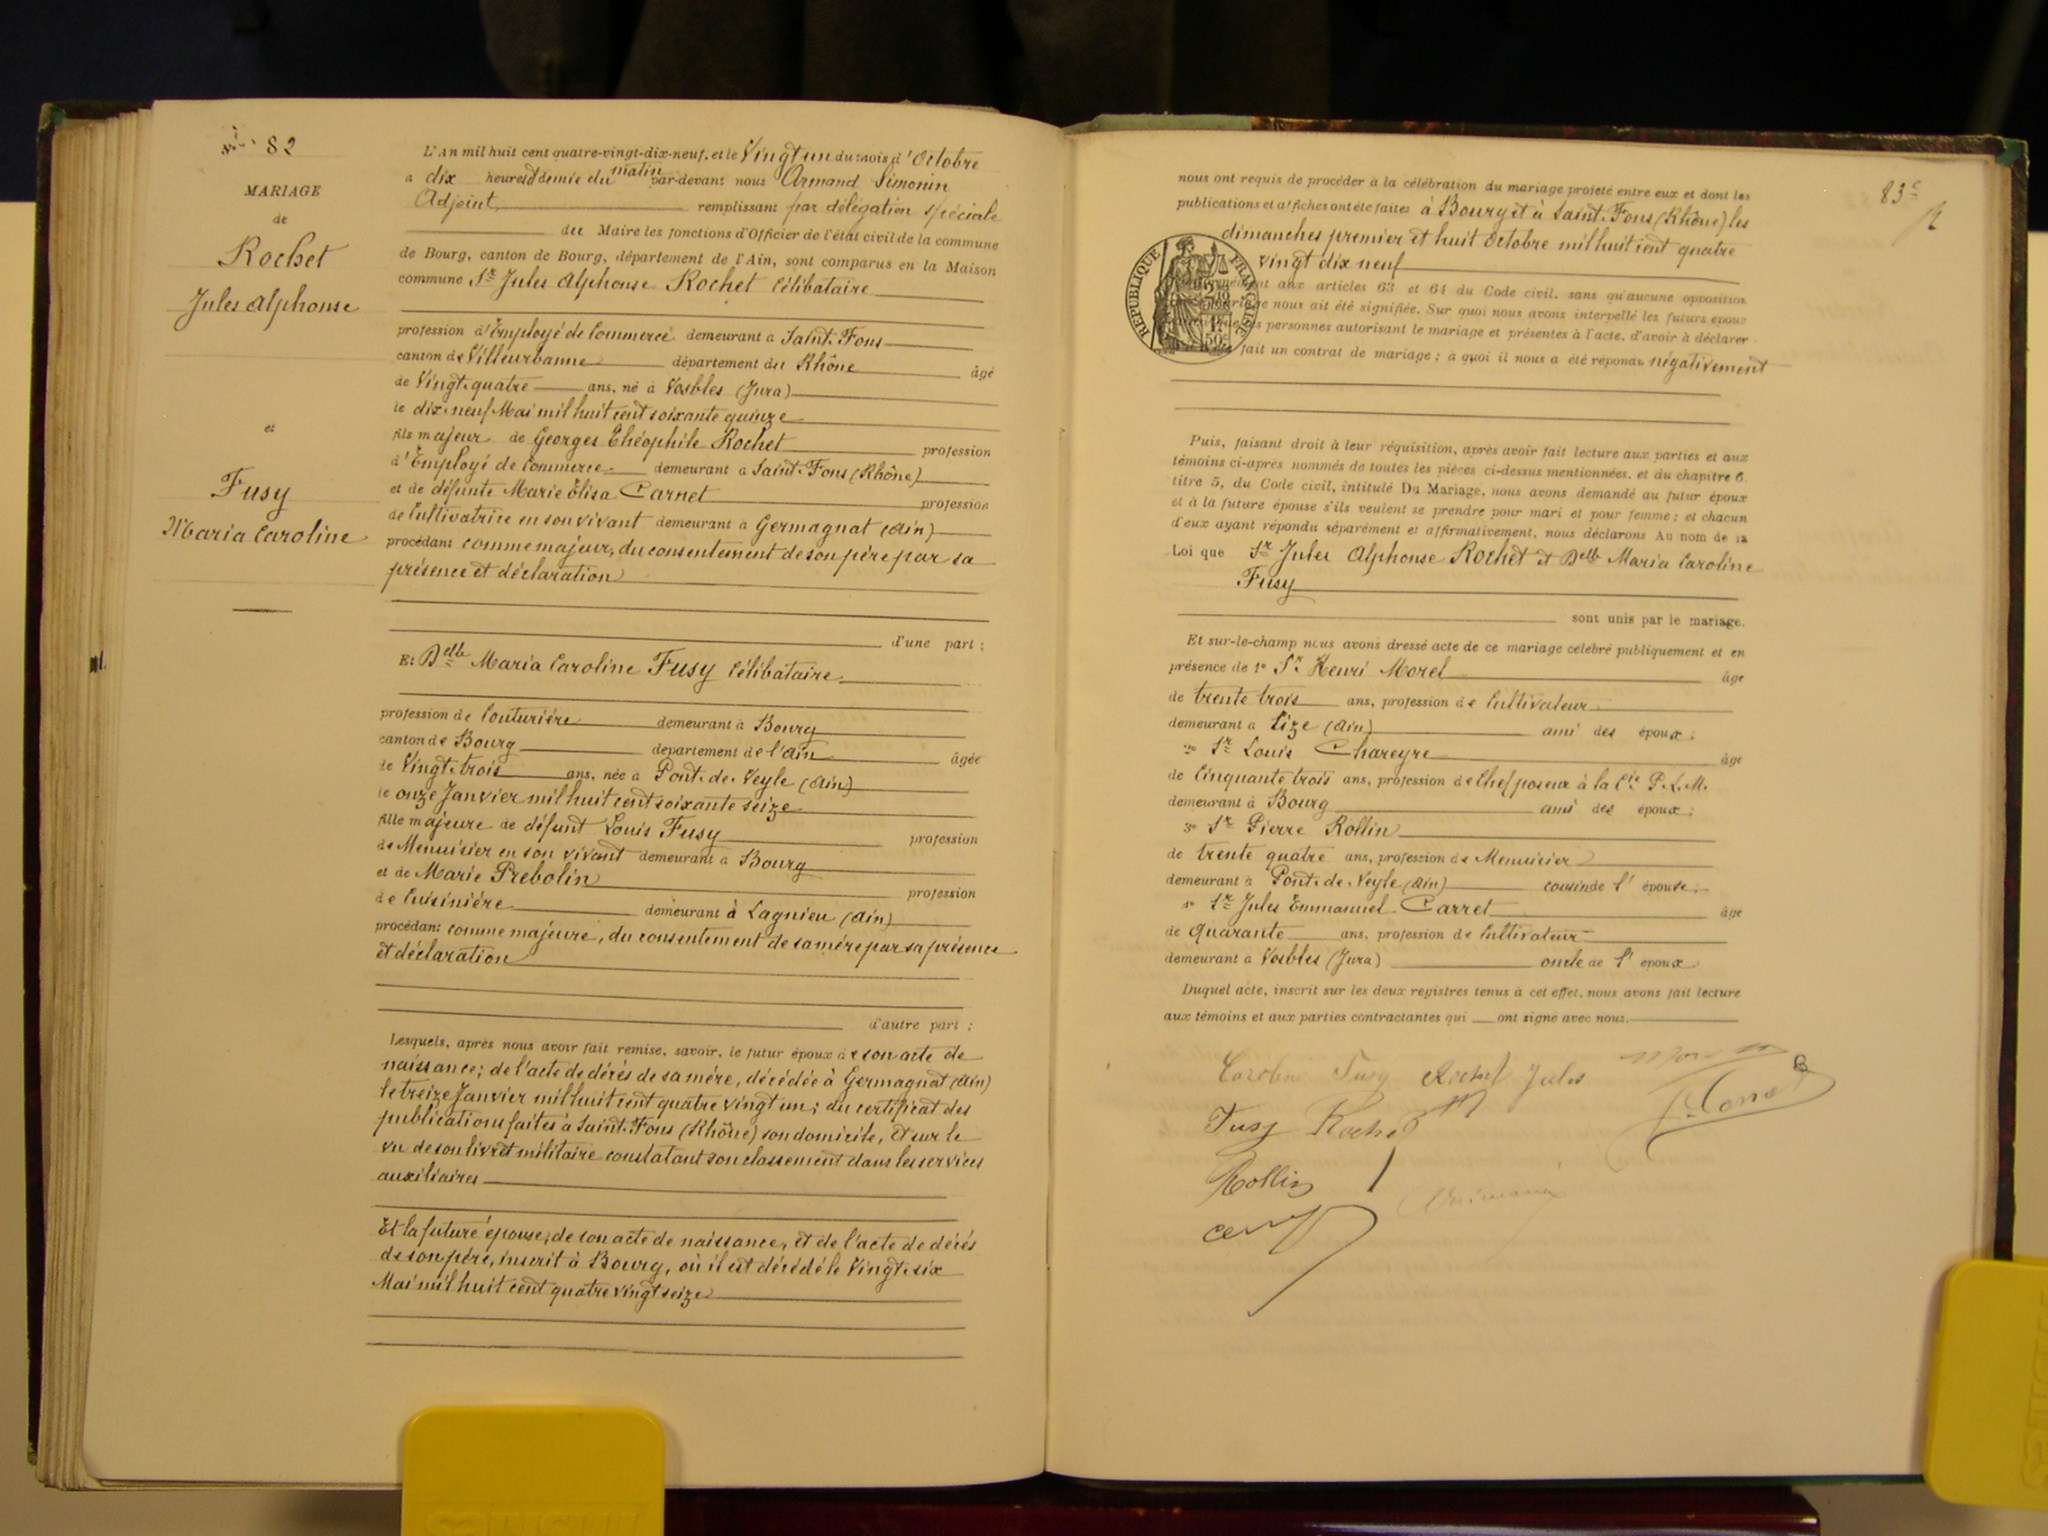 N° 82
MARIAGE
de
Rochet
Jules Alphonse
et
Fusy
Maria Caroline
L'An mil huit cent quatre-vingt-dix-neuf, et le Vingt un du mois d'Octobre
à dix heures et demie du matin par-devant nous Armand Simonin
Adjoint remplissant par délégation spéciale
du Maire les fonctions d'Officier de l'état civil de la commune
de Bourg, canton de Bourg, département de l'Ain, sont comparus en la Maison
commune Sr Jules Alphonse Rochet Célibataire
profession d'Employé de Commerce demeurant à Saint-Fons
canton de Villeurbanne département du Rhône âgé
de Vingt-quatre ans, né à Vosbles (Jura)
le dix-neuf Mai mil huit cent soixante quinze
fils majeur de Georges Théophile Rochet profession
d'Employé de Commerce demeurant à Saint-Fons (Rhône)
et de défunte Marie Elisa Carnet profession
de Cultivatrice en son vivant demeurant à Germagnat (Ain)
procédant comme majeur, du consentement de son père par sa
présence et déclaration
d'une part ;
Et Delle Maria Caroline Fusy Célibataire
profession de Couturière demeurant à Bourg
canton de Bourg département de l'Ain âgée
de Vingt-trois ans, née à Pont-de-Veyle (Ain)
le onze Janvier mil huit cent soixante seize
fille majeure de défunt Louis Fusy profession
de Menuisier en son vivant demeurant à Bourg
et de Marie Prebolin profession
de Cuisinière demeurant à Lagnieu (Ain)
procédant comme majeure, du consentement de sa mère par sa présence
et déclaration
d'autre part ;
Lesquels, après nous avoir fait remise, savoir, le futur époux de son acte de
naissance ; de l'acte de décès de sa mère, décédée à Germagnat (Ain)
le treize Janvier mil huit cent quatre vingt un ; du certificat des
publications faites à Saint-Fons (Rhône) son domicile, et sur le
vu de son livret militaire constatant son classement dans les services
auxiliaires
Et la future épouse, de son acte de naissance, et de l'acte de décès
de son père, inscrit à Bourg, où il est décédé le Vingt-six
Mai mil huit cent quatre vingt seize
83e
nous ont requis de procéder à la célébration du mariage projeté entre eux et dont les
publications et affiches ont été faites à Bourg et à Saint-Fons (Rhône) les
dimanches premier et huit Octobre mil huit cent quatre
vingt dix neuf
RÉPUBLIQUE FRANÇAISE
aux articles 63 et 64 du Code civil, sans qu'aucune opposition
nous ait été signifiée. Sur quoi nous avons interpellé les futurs époux
personnes autorisant le mariage et présentes à l'acte, d'avoir à déclarer
fait un contrat de mariage ; à quoi il nous a été répondu négativement
Puis, faisant droit à leur réquisition, après avoir fait lecture aux parties et aux
témoins ci-après nommés de toutes les pièces ci-dessus mentionnées, et du chapitre 6,
titre 5, du Code civil, intitulé Du Mariage, nous avons demandé au futur époux
et à la future épouse s'ils veulent se prendre pour mari et pour femme ; et chacun
d'eux ayant répondu séparément et affirmativement, nous déclarons Au nom de la
Loi que Sr Jules Alphonse Rochet et Delle Maria Caroline
Fusy
sont unis par le mariage.
Et sur-le-champ nous avons dressé acte de ce mariage célébré publiquement et en
présence de 1° Sr Henri Morel âgé
de trente trois ans, profession de Cultivateur
demeurant à Cize (Ain) ami des époux ;
2° Sr Louis Chareyre âgé
de Cinquante trois ans, profession de Chef poseur à la Cie P.L.M.
demeurant à Bourg ami des époux ;
3° Sr Pierre Rollin
de trente quatre ans, profession de Menuisier
demeurant à Pont-de-Veyle (Ain) cousin de l'épouse
4° Sr Jules Emmanuel Carret âgé
de quarante ans, profession de Cultivateur
demeurant à Vosbles (Jura) oncle de l'époux
Duquel acte, inscrit sur les deux registres tenus à cet effet, nous avons fait lecture
aux témoins et aux parties contractantes qui ont signé avec nous.
Caroline Fusy Rochet Jules
Fusy Rochet
Rollin